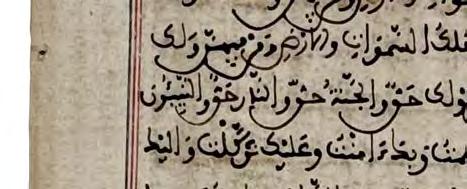 ملك السموات والارض ومن فيهن ولك
قولك حق والجنة حق والنار حق والنبيون
وبك ءامنت وعليك توكلت واليك